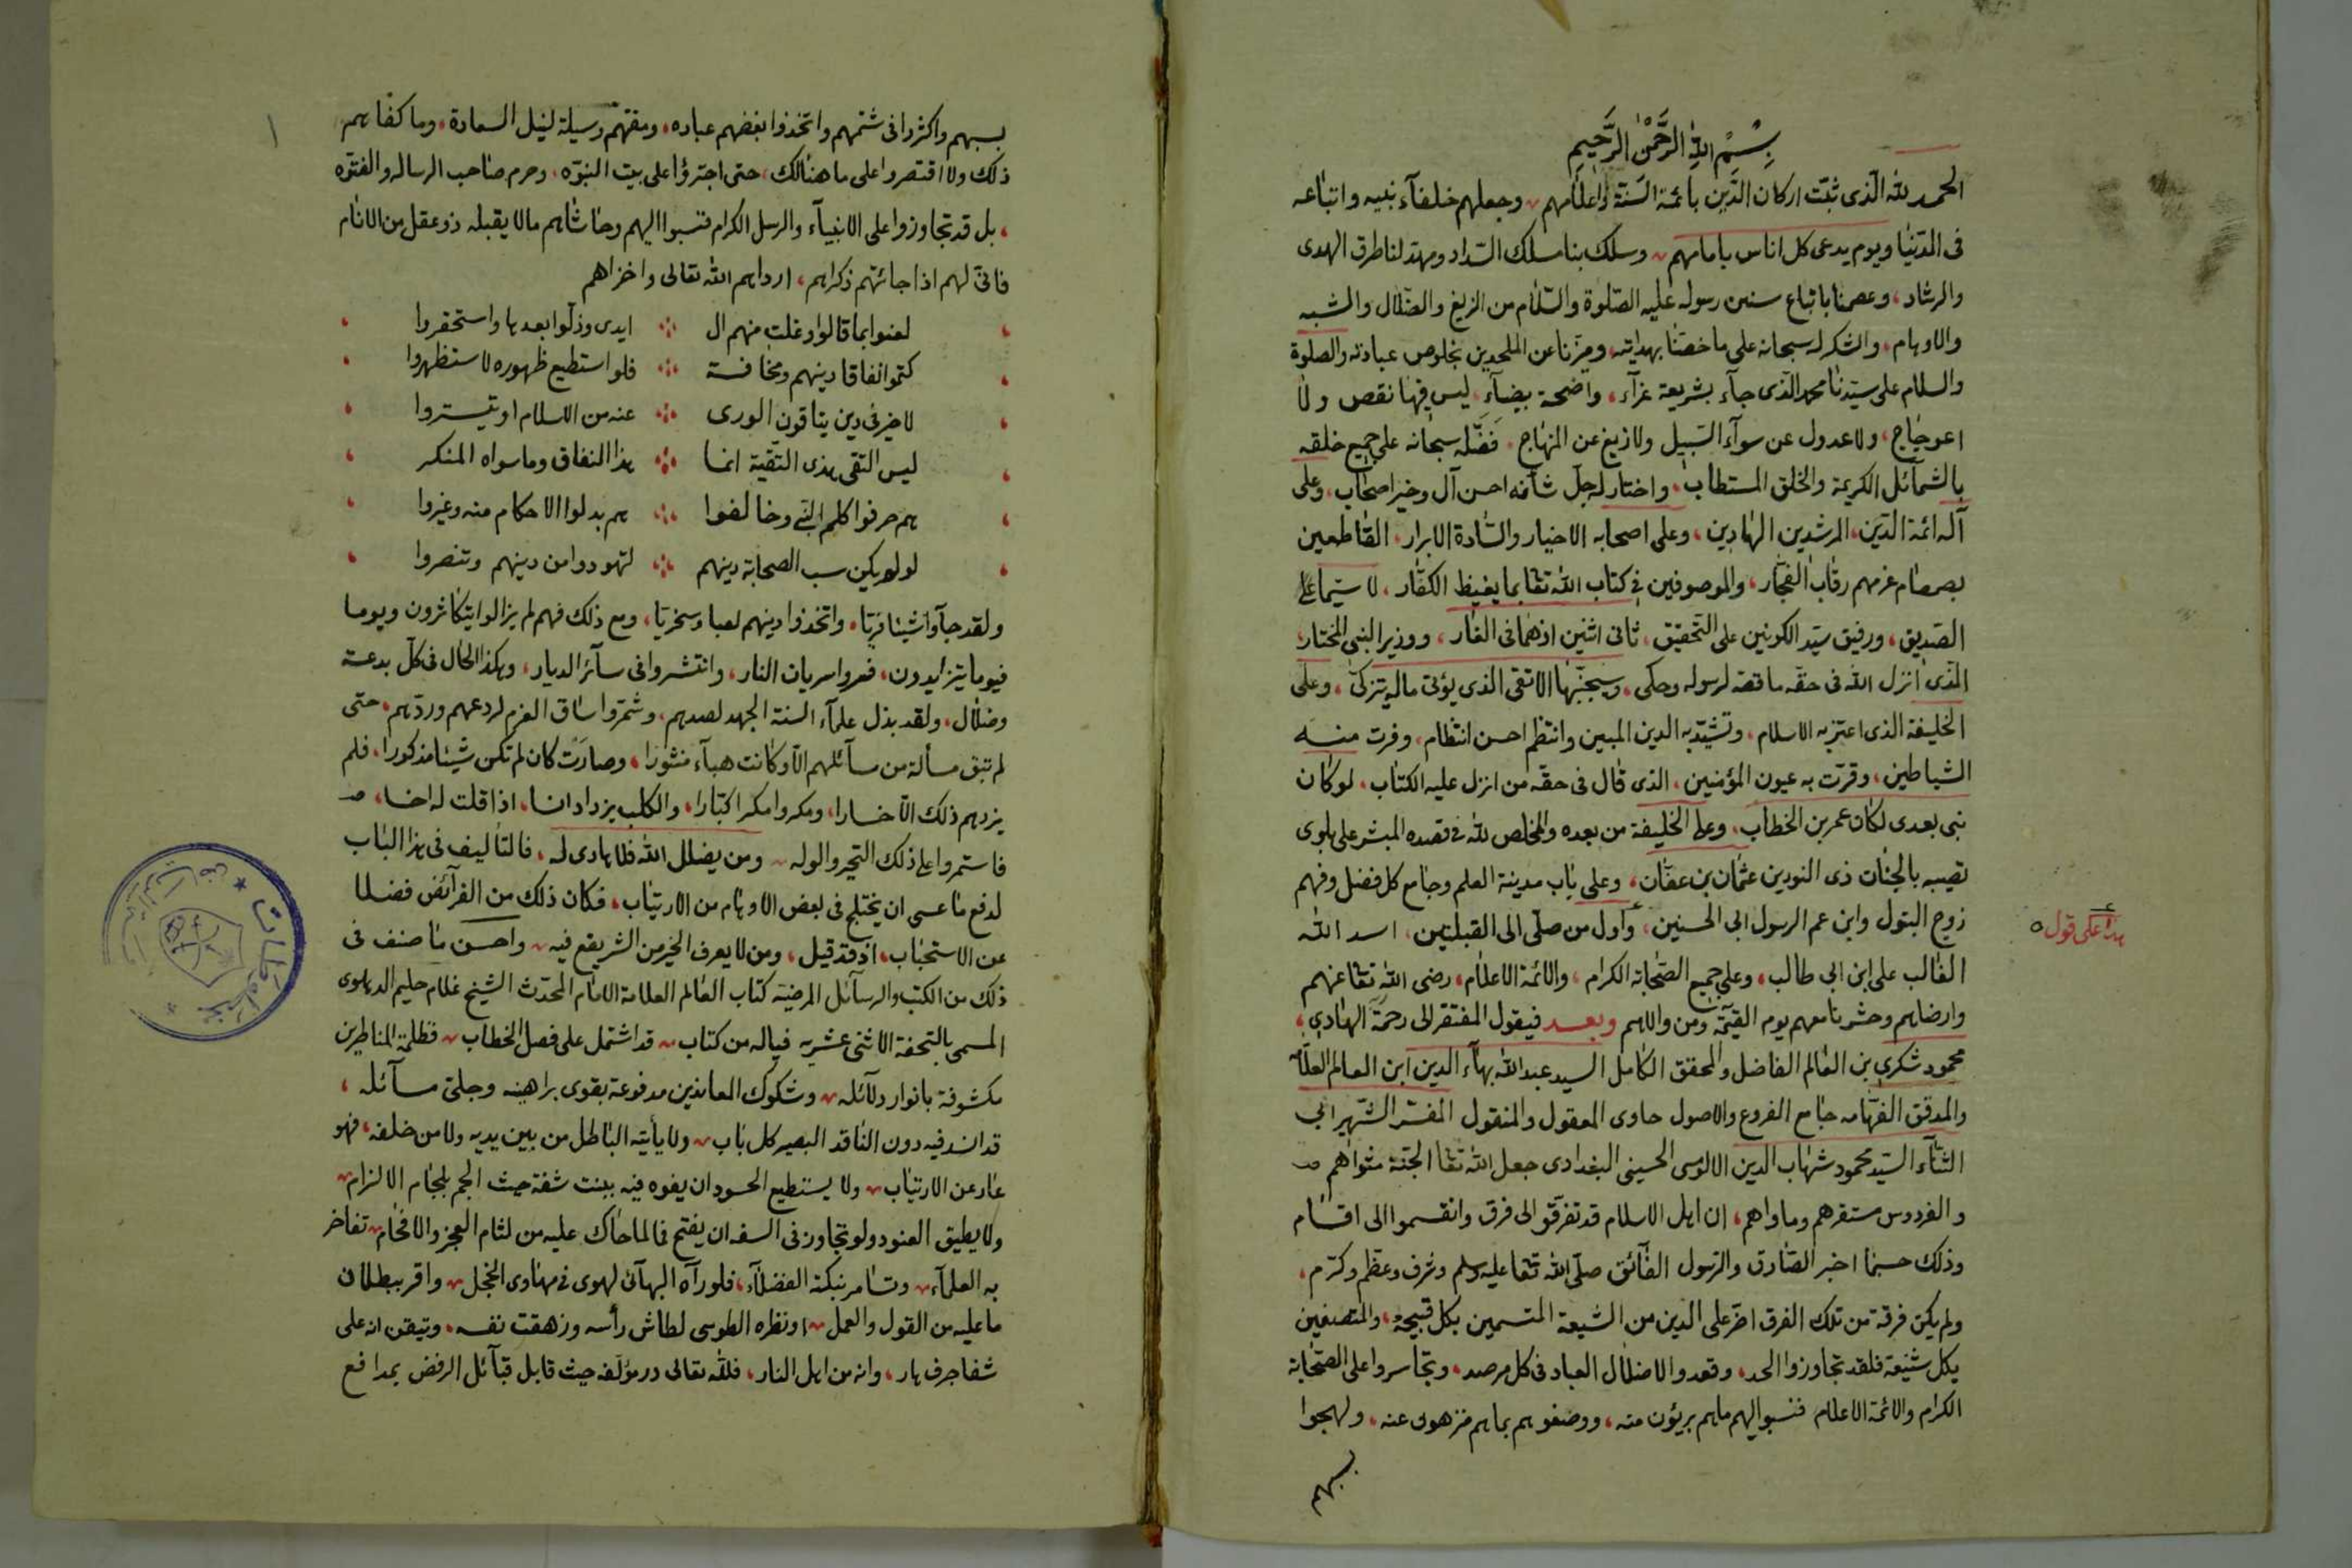 بِسْمِ اللهِ الرَّحْمٰنِ الرَّحِيمِ
الحمد لله الّذى ثبّت اركان الدّين بائمة السّنة واعلامهم وجعلهم خلفآء نبيه واتباعه
فى الدّنيا ويوم يدعى كل اناس بامامهم وسلك بنا مسلك السّداد ومهد لنا طرق الهدى
والرشاد، وعصمنا باتباع سنن رسوله عليه الصّلوة والسّلام من الزيغ والضّلال والشبه
والاوهام، والشكر له سبحانه على ما خصّنا بهدايته، وميّزنا عن الملحدين بخلوص عبادته والصلوة
والسلام على سيّدنا محمد الّذى جآء بشريعة غرّآء، واضحة بيضآء، ليس فيها نقص ولا
اعوجاج، ولا عدول عن سوآء السّبيل ولا زيغ عن المنهاج، فَضّله سبحانه على جميع خلقه
بالشمآئل الكريمة والخلق المستطاب، واختار له جلّ شأنه احسن آل وخير اصحاب، وعلى
آله ائمة الدّين، المرشدين الهادين، وعلى اصحابه الاخيار والسّادة الابرار، القاطعين
بصمصام عزمهم رقاب الفجّار، والموصوفين فى كتاب الله تعا بما يغيظ الكفّار، لا سيّما على
الصّديق، ورفيق سيّد الكونين على التّحقيق، ثانى اثنين اذ هما فى الغار، ووزير النبى المختار،
الّذى انزل الله فى حقّه ما قصّه لرسوله وحكى، وسيجنّبها الاتقى الّذى يؤتى ماله يتزكّى، وعلى
الخليفة الذى اعتز به الاسلام، وتشيّد به الدين المبين وانتظم احسن انتظام، وفرت منه
الشياطين، وقرّت به عيون المؤمنين، الذى قال فى حقّه من انزل عليه الكتاب، لو كان
نبى بعدى لكان عمر بن الخطاب، وعلى الخليفة من بعده والمخلص لله فى قصده المبشر على بلوى
تصيبه بالجنات ذى النورين عثمان بن عفّان، وعلى باب مدينة العلم وجامع كل فضل وفهم
زوج البتول وابن عم الرسول ابى الحسنين، وأول من صلّى الى القبلتين، اسد الله
هذا على قول
الغالب على ابن ابى طالب، وعلى جميع الصّحابة الكرام، والائمة الاعلام، رضى الله تعا عنهم
وارضاهم وحشرنا معهم يوم القيمة ومن والاهم وبعد فيقول المفتقر الى رحمة الهادى،
محمود شكرى بن العالم الفاضل والمحقق الكامل السيد عبد الله بهآء الدين ابن العالم العلّامه
والمدقق الفهّامه جامع الفروع والاصول حاوى المعقول والمنقول المفسّر الشّهير ابى
الثنآء السّيد محمود شهاب الدين الالوسى الحسينى البغدادى جعل الله تعا الجنّة مثواهم
والفردوس مستقرهم وماواهم، ان اهل الاسلام قد تفرّقوا الى فرق وانقسموا الى اقسام
وذلك حسبما اخبر الصّادق والرّسول الفآئق صلّى الله تعا عليه وسلم وشرف وعظم وكرّم،
ولم يكن فرقة من تلك الفرق اضرّ على الدين من الشيعة المتسمين بكل قبيحة، والمتصفين
بكل شنيعة فلقد تجاوزوا الحد، وقعدوا لاضلال العباد فى كل مرصد، وتجاسروا على الصّحابة
الكرام والائمة الاعلام فنسبوا اليهم ما هم بريئون منه، ووصفوهم بما هم منزهون عنه، ولهجوا
بسبهم
١
بسبهم واكثروا فى شتمهم واتخذوا بغضهم عباده، ومقتهم وسيلة لنيل السعادة، وما كفاهم
ذلك ولا اقتصروا على ما هنالك، حتى اجترؤا على بيت النبوّه، وحرم صاحب الرساله والفتوّه
، بل قد تجاوزوا على الانبيآء والرسل الكرام فنسبوا اليهم وحاشاهم مالا يقبله ذو عقل من الانام
فانّى لهم اذا جائتهم ذكراهم، ارداهم الله تعالى واخزاهم
لعنوا بما قالوا وغلت منهم ال ايدى وذلّوا بعدها واستحقروا
كتموا نفاقا دينهم ومخافة فلو استطيع ظهوره لاستظهروا
لا خير فى دين يناقون الورى عنه من الاسلام او يتستروا
ليس التقى هذى التّقية انما هذا النفاق وما سواه المنكر
هم حرفوا كلم النبى وخالفوا هم بدلوا الاحكام منه وغيروا
لو لم يكن سب الصحابة دينهم لتهودوا من دينهم وتنصروا
ولقد جآوا شيئا فريّا، واتخذوا دينهم لعبا وسخريّا، ومع ذلك فهم لم يزالوا يتكاثرون ويوما
فيوما يتزايدون، فعروا سريان النار، وانتشروا فى سآئر الديار، وهكذا الحال فى كلّ بدعة
وضلال، ولقد بذل علمآء السنة الجهد لصدهم، وشمّروا ساق العزم لردعهم وردّهم، حتى
لم تبق مسألة من مسآئلهم الّا وكانت هبآء منثورا، وصارت كان لم تكن شيئا مذكورا، فلم
يزدهم ذلك الّا خسارا، ومكروا مكرا كبّارا، والكلب يزداد انسا، اذا قلت له اخسا،
فاستمروا على ذلك التحير والوله ومن يضلل الله فلا هادى له، فالتأليف فى هذا الباب
لدفع ما عسى ان يختلج فى بعض الاوهام من الارتياب، فكان ذلك من الفرآئض فضلا
عن الاستحباب، اذ قد قيل، ومن لا يعرف الخير من الشر يقع فيه، واحسن ما صنف فى
ذلك من الكتب والرسآئل المرضيّة كتاب العالم العلامة الامام المحدّث الشيخ غلام حليم الدهلوى
المسمى بالتحفة الاثنى عشريه فياله من كتاب، قد اشتمل على فصل الخطاب، فظلمة المناظرين
مكشوفة بانوار دلآئله، وشكوك المعاندين مدفوعة بقوى براهينه وجلىّ مسآئله،
قد انسد فيه دون الناقد البصير كل باب، ولا يأتيه الباطل من بين يديه ولا من خلفه، فهو
عار عن الارتياب، ولا يستطيع الحسود ان يفوه فيه ببنت شفة حيث الجم بلجام الالزام
ولا يطيق العنود ولو تجاوز فى السفه ان يفتح فا لما حاك عليه من لثام العجز والافحام، تفاخر
به العلمآء، وتسامر بنكته الفضلآء، فلو رآه البهآئى لهوى فى مهاوى الخجل، واقر ببطلان
ما عليه من القول والعمل، او نظره الطوسى لطاش رأسه وزهقت نفسه، وتيقن انه على
شفا جرف هار، وانه من اهل النار، فللّه تعالى در مؤلّفه حيث قابل قبآئل الرفض بمدافع